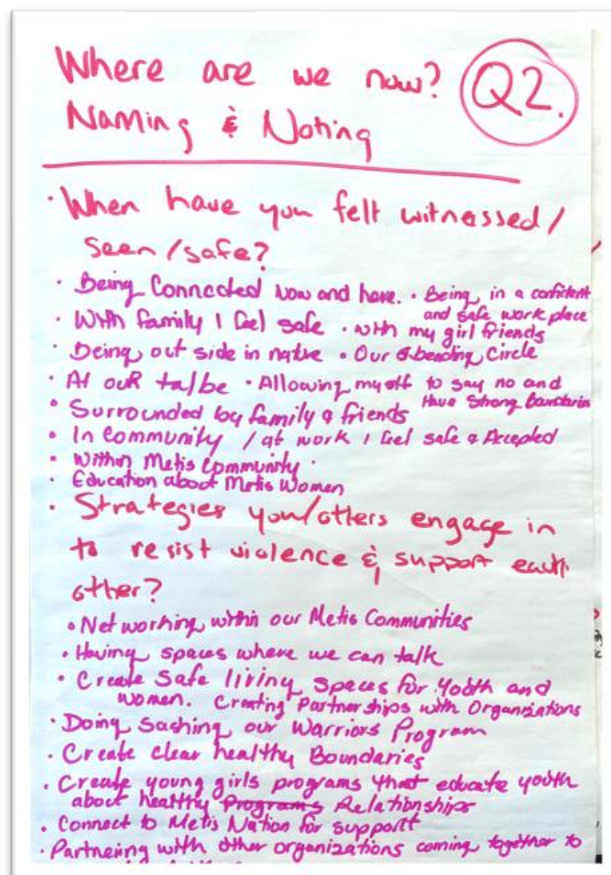 Where are we now? Q2.
Naming & Noting
· When have you felt witnessed/
seen/safe?
· Being Connected now and here. · Being in a confident
and safe work place
· With family I feel safe · with my girl friends
· Being out side in nature · Our beading Circle
· At our talbe · Allowing myself to say no and
Have Strong Boundaries
· Surrounded by family & friends
· In Community / at work I feel safe & Accepted
· Within Metis Community ·
· Education about Metis Women
· Strategies you/others engage in
to resist violence & support each
other?
· Net working within our Metis Communities
· Having spaces where we can talk
· Create Safe living spaces for Youth and
women. Creating Partnerships with Organizations
· Doing Sashing our Warriors Program
· Create clear healthy Boundaries
· Create young girls programs that educate youth
about healthy Programs Relationships
· Connect to Metis Nation for support
· Partnering with other organizations coming together to